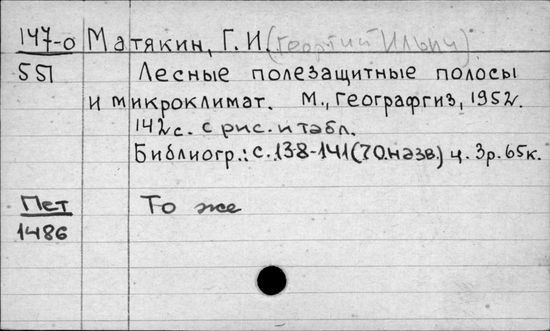 147-о Матякин, Г. И. (Георгий Ильич)
551 Лесные полезащитные полосы
и микроклимат. М., Географгиз, 1952.
142 с. с рис. и табл.
Библиогр.: с. 138-141 (70 назв.) ц. 3р. 65к.
Пет То же
1486